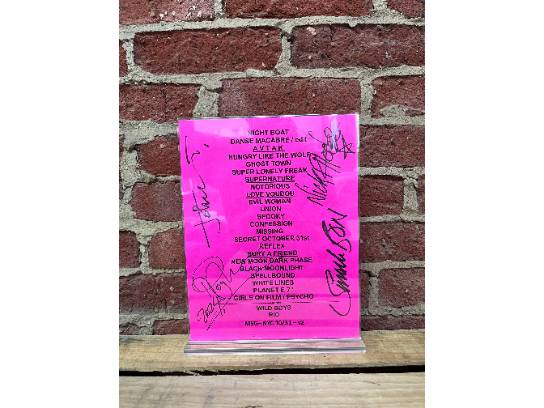 NIGHT BOAT
DANSE MACABRE /
A V T A K
HUNGRY LIKE THE WOLF
GHOST TOWN
SUPER LONELY FREAK
SUPERNATURE
NOTORIOUS
LOVE VOUDOU
EVIL WOMAN
UNION
SPOOKY
CONFESSION
MISSING
SECRET OCTOBER 31st
REFLEX
BURY A FRIEND
NEW MOON DARK PHASE
BLACK MOONLIGHT
SPELLBOUND
WHITE LINES
PLANET E 7"
GIRLS ON FILM / PSYCHO
WILD BOYS
RIO
MSG - NYC 10/31 -